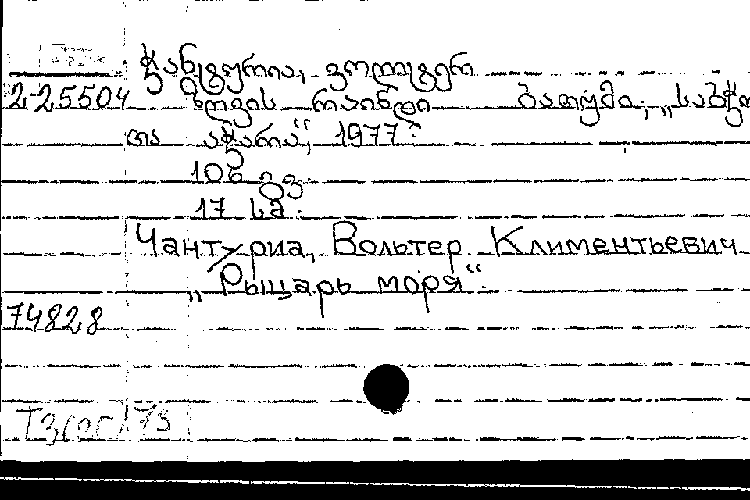 ჭანტურია, ვოლტერ
2-25504 ზღვის რაინდი ბათუმი, „საბჭო
თა აჭარა“, 1977.
106 გვ.
17 სმ.
Чантурия, Вольтер Климентьевич
„Рыцарь моря“.
74828